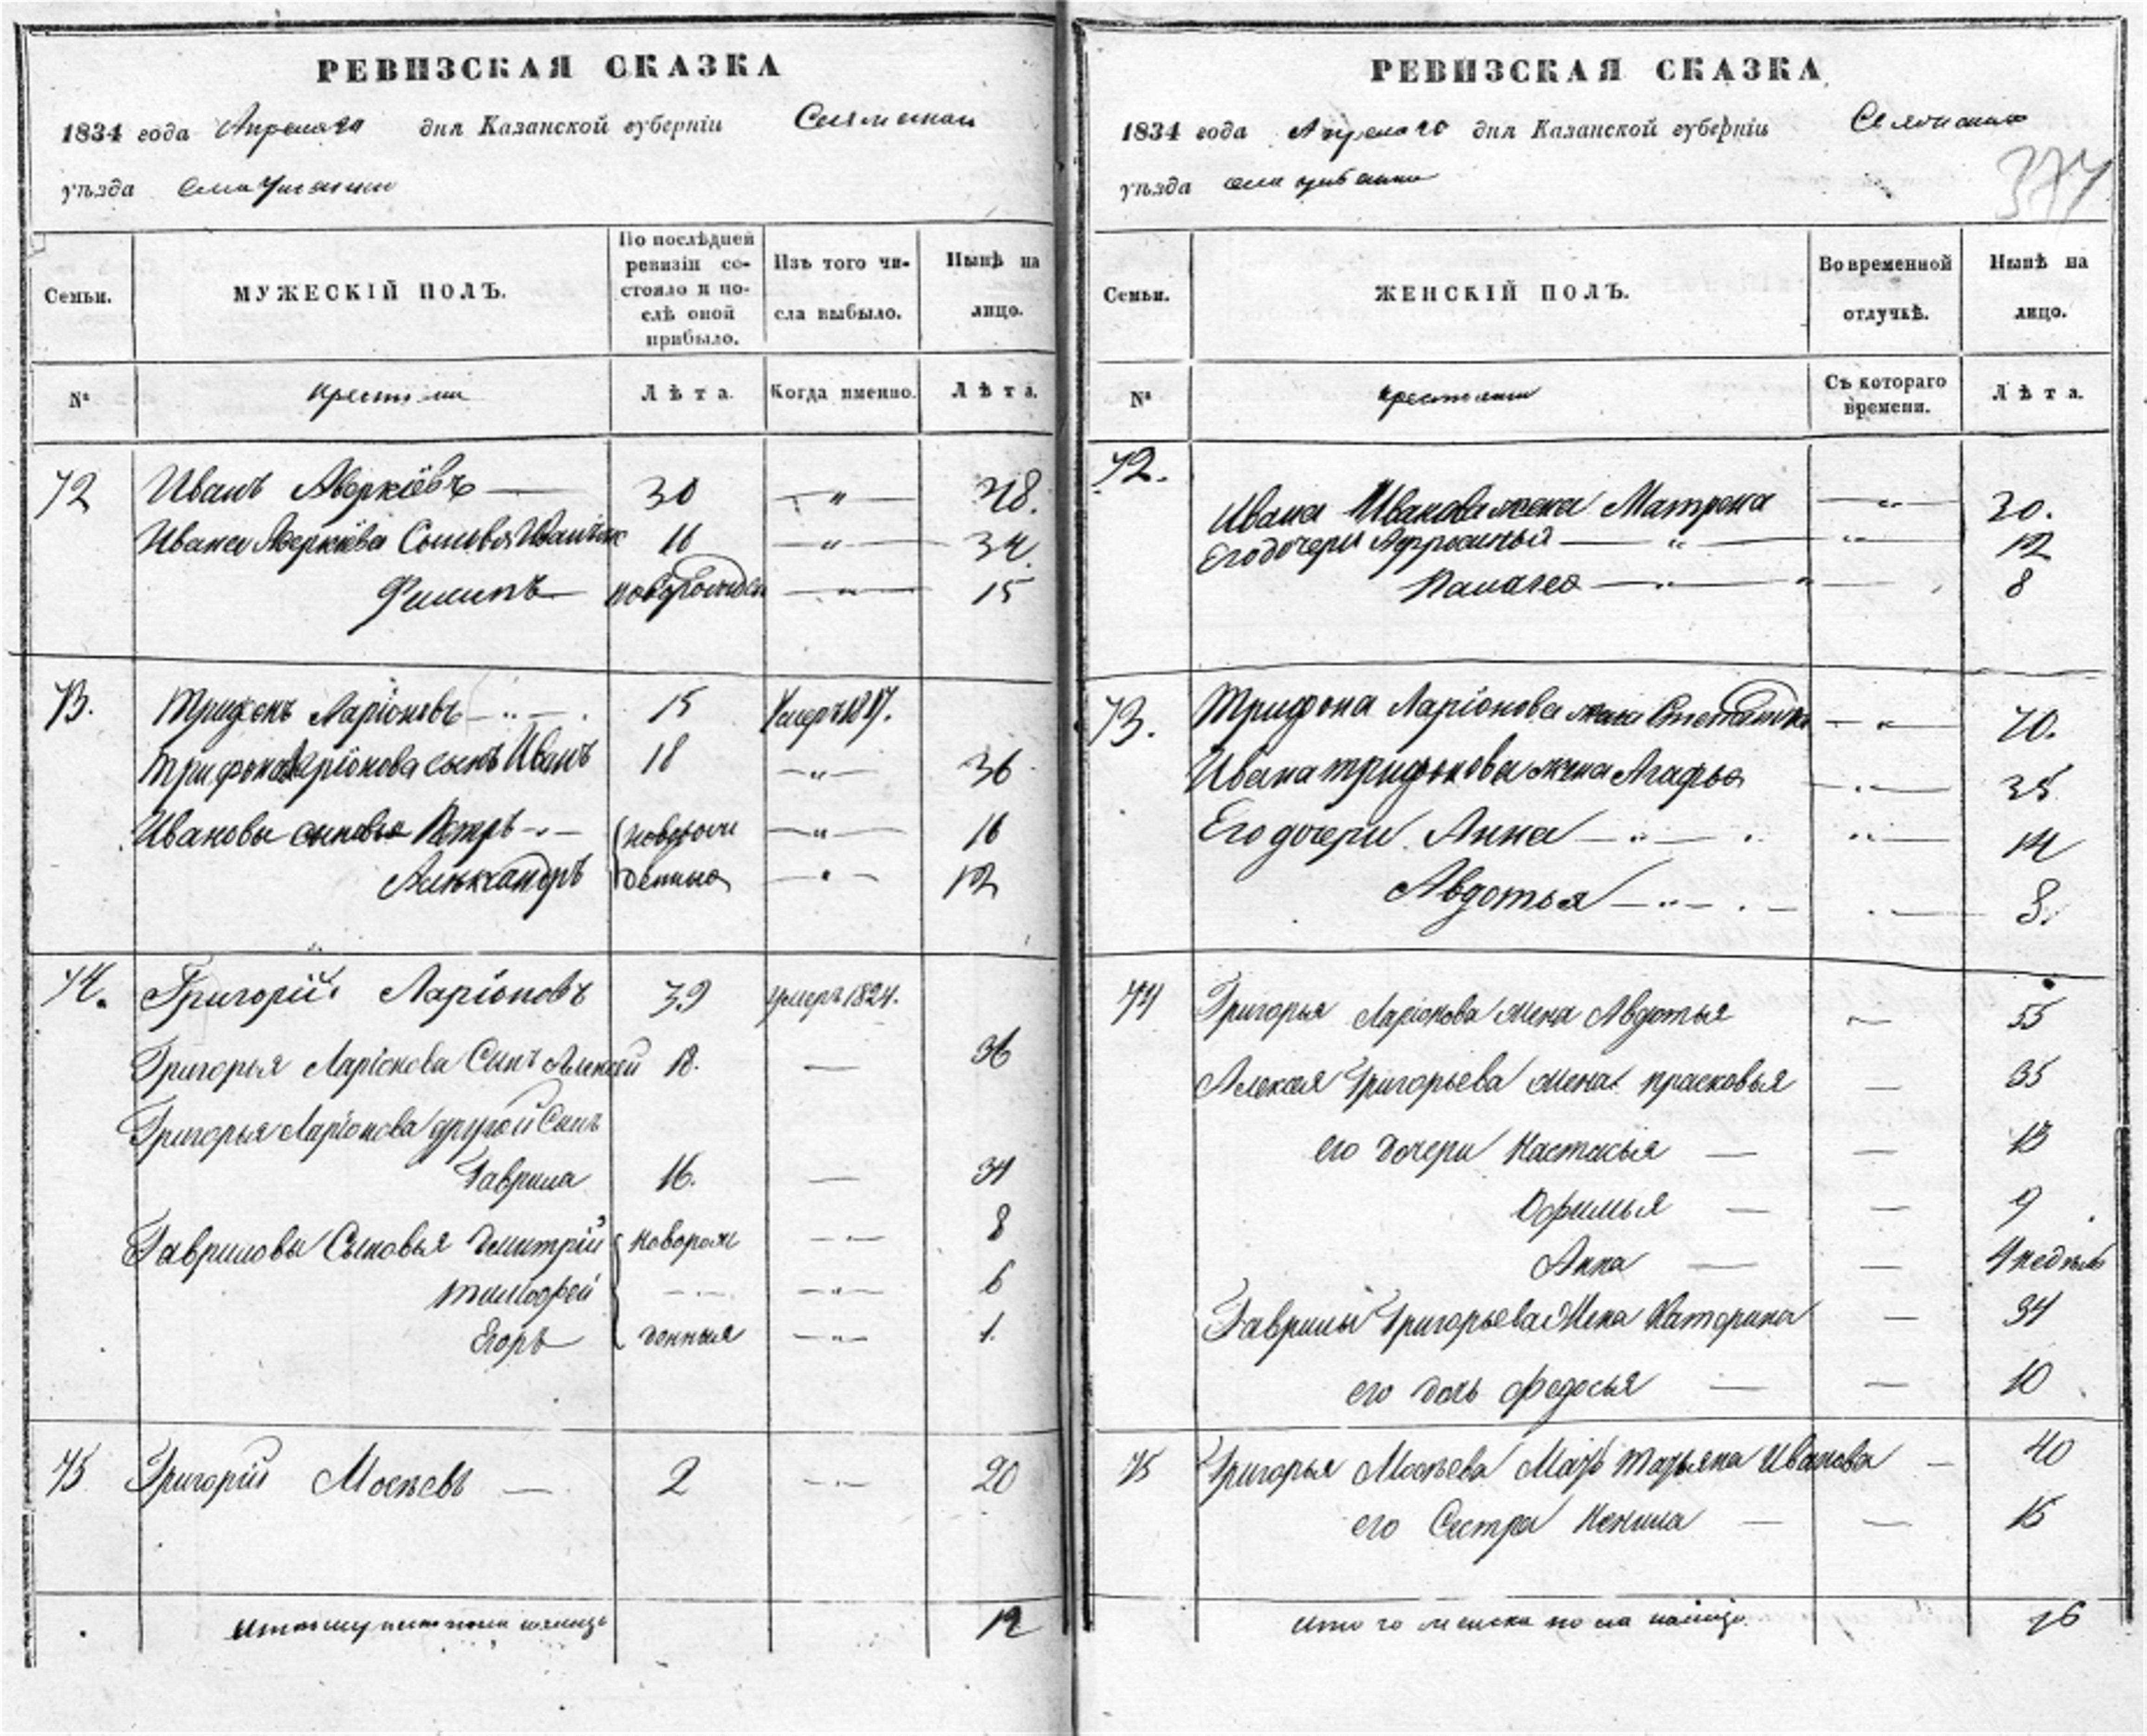 РЕВИЗСКАЯ СКАЗКА
1834 года Апреля 20 дня Казанской губерніи
уѣзда села
Семьи.
МУЖЕСКІЙ ПОЛЪ.
По послѣдней ревизіи со-
стояло и по-
слѣ оной
прибыло.
Изъ того чи-
сла выбыло.
Нынѣ на
лицо.
№
Лѣта.
Когда именно.
Лѣта.
72 Иванъ Аверкіевъ — 30 — " — 48.
Ивана Аверкіева Сыновья Иванъ 16 — " — 34.
Филипъ — новорожден — " — 15
73. Трифонъ Ларіоновъ 45 Умеръ 1817.
Трифона Ларіонова сынъ Иванъ 18 — " — 36
Ивановы сыновья Петръ новорож — " — 16
Александръ денныя — " — 12
74. Григорій Ларіоновъ 39 умеръ 1824.
Григорья Ларіонова Сынъ Алексей 18. — 36
Григорья Ларіонова другой Сынъ
Гаврила 16. — 34
Гавриловы Сыновья Дмитрій новорож — 8
тимофей — 6
Егоръ денныя — 1.
75 Григорій Мосѣевъ — 2 — 20
12
РЕВИЗСКАЯ СКАЗКА
1834 года Апреля 20 дня Казанской губерніи
уѣзда села
374
Семьи.
ЖЕНСКІЙ ПОЛЪ.
Во временной
отлучкѣ.
Нынѣ на
лицо.
№
Съ котораго
времени.
Лѣта.
72. Ивана Иванова жена Матрена — " — 30.
Его дочери Афросинья — " — 12
Палагея — " — 8
73. Трифона Ларіонова жена — " — 70.
Ивана трифонова жена Агафья — 35
Его дочери Анна — " — 14
Авдотья — 8.
74 Григорья Ларіонова жена Авдотья — 55
Алексея Григорьева жена прасковья — 35
его дочери Настасья — — 13
Офимья — — 9
Анна — — 4 недели
Гаврилы Григорьева жена Катерина — 34
его дочь федосья — — 10
75 Григорья Мосѣева Мать татьяна Иванова — 40
его Сестра Ненила — — 15
Итого женска пола налицо 16